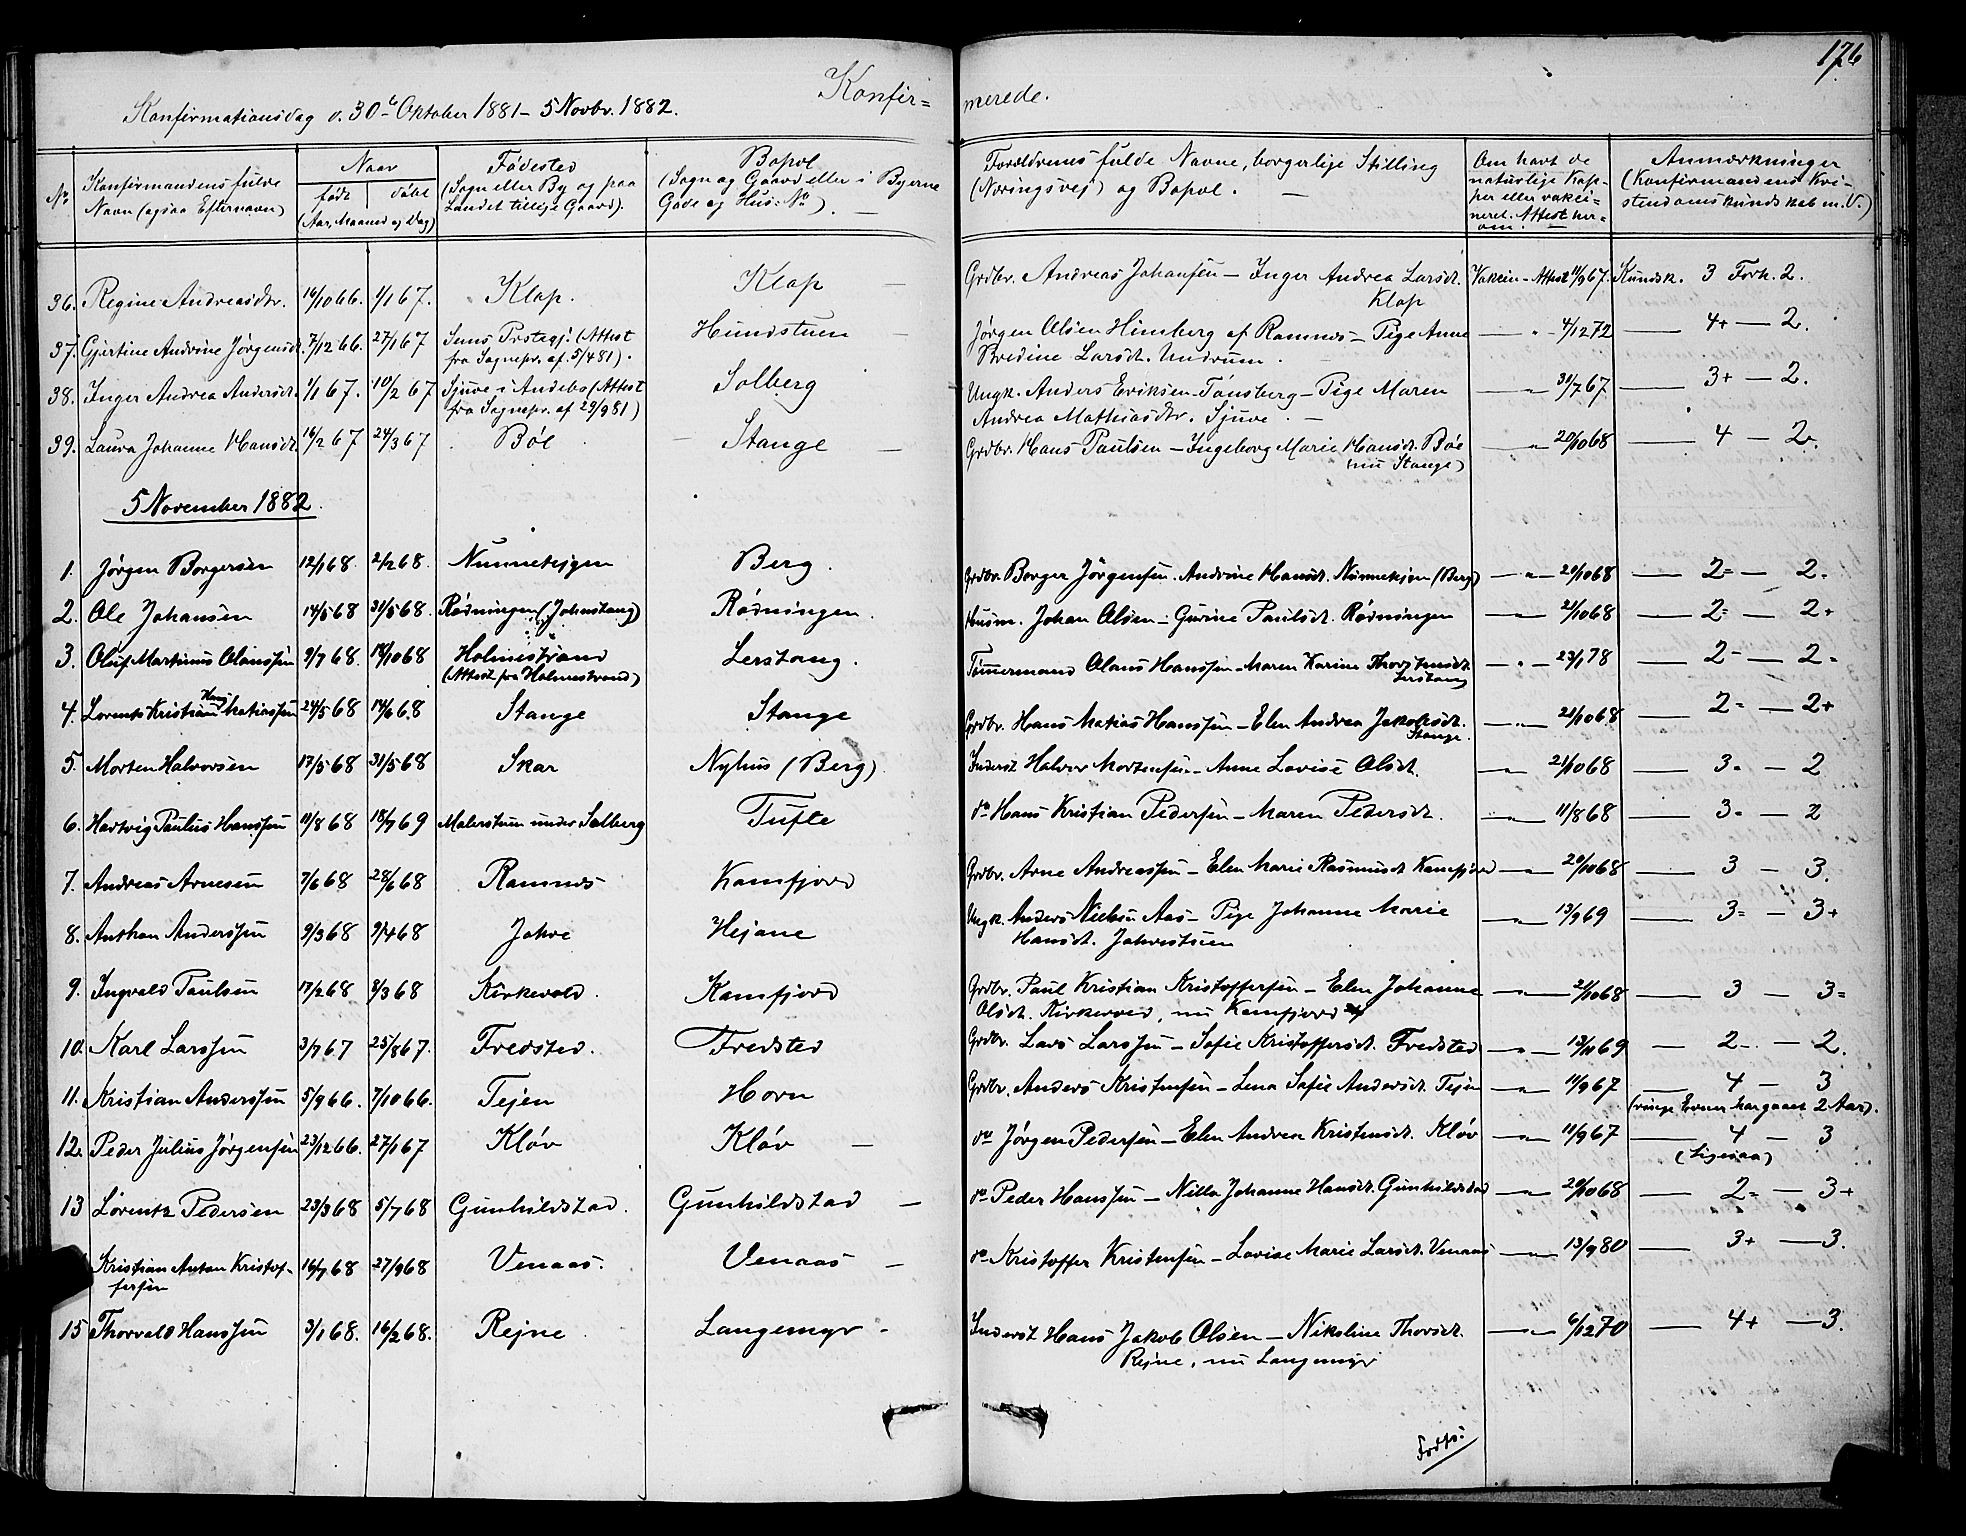 176
Konfir= merede.
Konfirmationsdag d. 30te Oktober 1881 - 5 Novbr. 1882.
No
Konfirmandens fulde Navn (ogsaa Efternavn)
Naar
født | døbt
(Aar, Maaned og Dag)
Fødested
(Sogn eller By og paa Landet tillige Gaard).
Bopæl
(Sogn og Gaard eller i Byerne Gade og Hus=No).
Forældrenes fulde Navne, borgerlige Stilling (Næringsvej) og Bopæl.
Om havt de naturlige Kopper eller vakcineret. Attest herom.
Anmærkninger
(Konfirmandens Kristendomskundskab m.V.)
36. Regine Andreasdtr. 16/10 66. 1/1 67. Klop. Klop Grdbr. Andreas Johansen - Inger Andrea Larsdt. Klop Vakcin - Attest 11/9 67. Kundsk. 3 Forh. 2.
37. Gjertine Andrine Jørgensdt. 7/12 66. 27/1 67 Sems Prstegj. (Attest fra Sognepr. af 5/4 81). Hundstuen
Jørgen Olsen Himberg af Ramnes - Pige Anne Bredine Larsdt. Undrum. — " — 4/12 72 — 4+ — 2.
38. Inger Andrea Andersdt. 1/1 67. 10/2 67 Sjuve i Andebo (Attest fra Sognepr. af 29/9 81) Solberg
Ungk. Anders Eriksen Tønsberg - Pige Maren Andrea Mathiasdtr. Sjuve. — " — 31/7 67 — 3+ — 2.
39. Laura Johanne Hansdt. 16/2 67 24/3 67 Bøe Stange
Grdbr. Hans Paulsen - Ingeborg Marie Hansdt. Bøe (nu Stange) — " — 20/10 68 — 4 — 2.
5 November 1882
1. Jørgen Borgersen 12/1 68. 2/2 68. Nunnekjøen Berg. Grdbr. Borger Jørgensen. Andrine Hansdt. Nunnekjøen (Berg) — " — 20/10 68 — 2= — 2.
2. Ole Johansen 14/5 68 31/5 68. Rødningen (Johnstang) Rødningen. Husm. Johan Olsen - Gurine Paulsdt. Rødningen — " — 21/10 68 — 2= — 2+
3. Oluf Martinus Olaussen 9/7 68. 18/10 68 Holmestrand (Attest fra Holmestrand) Lerstang. Tømmermand Olaus Hanssen - Maren Karine Thorstensdt. Lerstang — " — 23/1 78 — 2= — 2=
4. Lorents Kristian Hans Matiassen 24/5 68 14/6 68 Stange Stange Grdbr. Hans Matias Hanssen - Elen Andrea Jakobsdt. Stange. — " — 21/10 68 — 2= — 2+
5. Morten Halvorsen 17/5 68 31/5 68 Skar Nyhus (Berg) Inderst Halvor Mortensen - Anne Lovise Olsdt. — " — 21/10 68 — 3= — 2
6. Hartvig Paulus Hanssen 11/8 68 18/7 69 Malerstuen under Solberg Tufte do Hans Kristian Pedersen - Maren Pedersdt. — " — 11/8 68 — 3= — 2
7. Andreas Arnesen 7/6 68 28/6 68 Ramnes Kamfjord Grdbr. Arne Andreassen - Elen Marie Rasmusdt Kamfjord — " — 20/10 68 — 3 — 3.
8. Anthon Anderssen 9/3 68 9/4 68 Johre Hejane Ungk. Anders Nielsen Aas - Pige Johanne Marie Hansdt. Johrestuen — " — 13/9 69 — 3= — 3+
9. Ingvald Paulsen 17/2 68 8/3 68 Kirkevold. Kamfjord Grdbr. Paul Kristian Kristoffersen - Elen Johanne Olsdt. Kirkevold, nu Kamfjord — " — 21/10 68 — 3 — 3=
10. Karl Larssen 3/7 67 25/8 67. Fredsted. Fredsted Grdbr. Lars Larssen - Sofie Kristoffersdt. Fredsted — " — 13/11 69 — 2= — 2.
11. Kristian Anderssen 5/9 66. 7/10 66. Tejen Horn Grdbr. Anders Kristensen - Lena Sofie Andersdt. Tejen — " — 11/9 67 — 4 — 3
(ringe Evner har gaaet 2 Aar).
12. Peder Julius Jørgensen 23/12 66. 27/1 67 Kløv Kløv do Jørgen Pedersen - Elen Andrea Kristensdt. Kløv — " — 11/9 67 — 4 — 3
(Ligesaa)
13 Lorentz Pedersen 23/3 68 5/7 68 Gunhildstad. Gunhildstad do Peder Hanssen - Nilla Johanne Hansdt. Gunhildstad — " — 20/10 68 — 2= — 3+
Kristian Anton Kristoffersen 16/7 68 27/9 68 Venaas. Venaas do Kristoffer Kristensen - Lovise Marie Larsdt. Venaas — " — 13/9 80 — 3+ — 3.
15 Thorvald Hanssen 3/1 68. 16/2 68. Rejne Langemyr Inderst Hans Jakob Olsen - Nikoline Thorsdt. Rejne, nu Langemyr — " — 6/12 70 — 4+ — 3.
Forts: